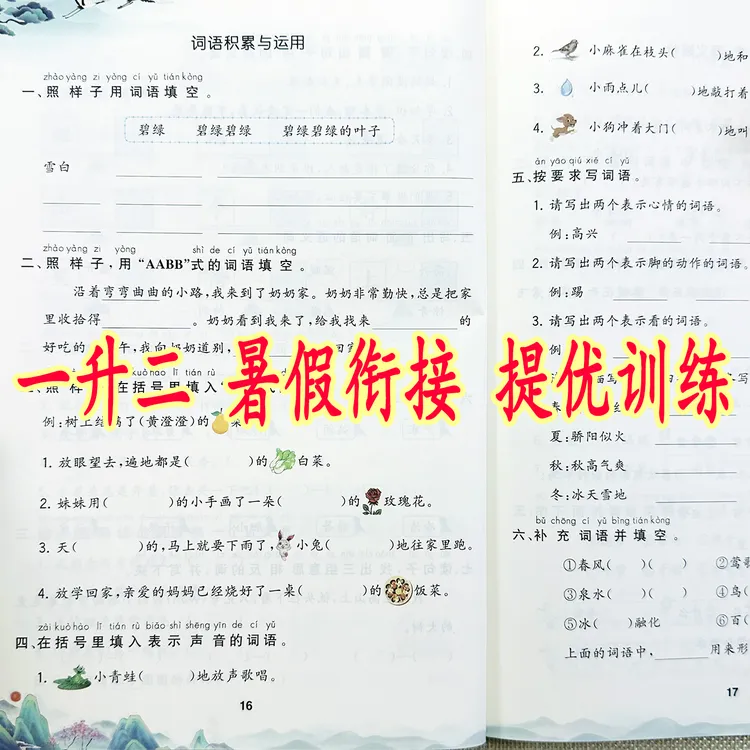 词语积累与运用
zhào yàng zi yòng cí yǔ tián kòng
一、照样子用词语填空。
碧绿 碧绿碧绿 碧绿碧绿的叶子
雪白
zhào yàng zi yòng shì de cí yǔ tián kòng
二、照样子,用“AABB”式的词语填空。
沿着弯弯曲曲的小路,我来到了奶奶家。奶奶非常勤快,总是把家
里收拾得________。奶奶看到我来了,给我找来________的
好吃的 午,我向奶奶道别,
一升二 暑假衔接 提优训练
例:树上结满了(黄澄澄)的
1. 放眼望去,遍地都是( )的 白菜。
2. 妹妹用( )的小手画了一朵( )的 玫瑰花。
3. 天( )的,马上就要下雨了, 小兔( )地往家里跑。
4. 放学回家,亲爱的妈妈已经烧好了一桌( )的 饭菜。
zài kuò hào lǐ tián rù biǎo shì shēng yīn de cí yǔ
四、在括号里填入表示声音的词语。
1. 小青蛙( )地放声歌唱。
16
2. 小麻雀在枝头( )地和
3. 小雨点儿( )地敲打着
4. 小狗冲着大门( )地叫
àn yāo qiú xiě cí yǔ
五、按要求写词语。
1. 请写出两个表示心情的词语。
例:高兴
2. 请写出两个表示脚的动作的词语。
例:踢
3. 请写出两个表示看的词语。
夏:骄阳似火
秋:秋高气爽
冬:冰天雪地
bǔ chōng cí yǔ bìng tián kòng
六、补充词语并填空。
①春风( )( ) ②莺歌
③泉水( )( ) ④鸟(
⑤冰( )融化 ⑥百(
上面的词语中,________用来形
17